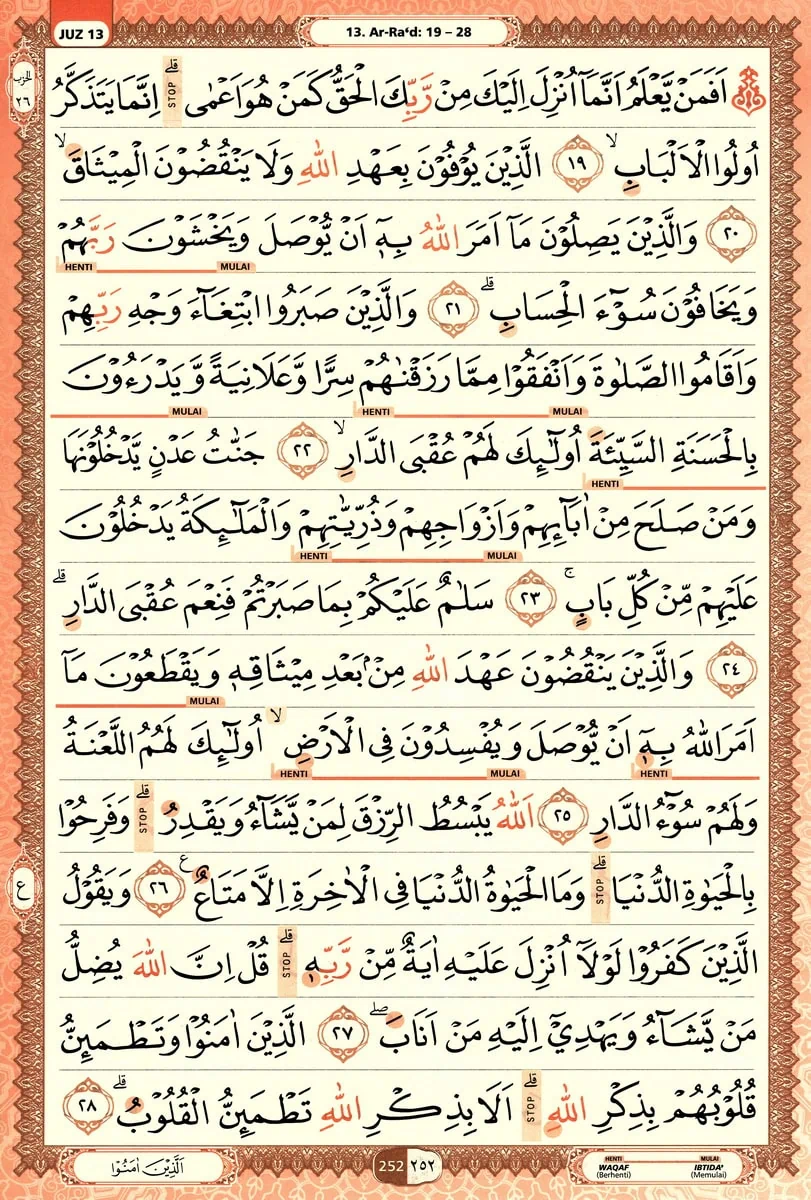 JUZ 13
13. Ar-Ra‘d: 19 – 28
الحزب
٢٦
اَفَمَنْ يَّعْلَمُ اَنَّمَآ اُنْزِلَ اِلَيْكَ مِنْ رَّبِّكَ الْحَقُّ كَمَنْ هُوَ اَعْمٰىۗ STOP اِنَّمَا يَتَذَكَّرُ
اُولُوا الْاَلْبَابِۙ ١٩ الَّذِيْنَ يُوْفُوْنَ بِعَهْدِ اللّٰهِ وَلَا يَنْقُضُوْنَ الْمِيْثَاقَۙ
٢٠ وَالَّذِيْنَ يَصِلُوْنَ مَآ اَمَرَ اللّٰهُ بِهٖٓ اَنْ يُّوْصَلَ وَيَخْشَوْنَ رَبَّهُمْ
HENTI MULAI
وَيَخَافُوْنَ سُوْۤءَ الْحِسَابِۗ ٢١ وَالَّذِيْنَ صَبَرُوا ابْتِغَاۤءَ وَجْهِ رَبِّهِمْ
وَاَقَامُوا الصَّلٰوةَ وَاَنْفَقُوْا مِمَّا رَزَقْنٰهُمْ سِرًّا وَّعَلَانِيَةً وَّيَدْرَءُوْنَ
MULAI HENTI MULAI
بِالْحَسَنَةِ السَّيِّئَةَ اُولٰۤىِٕكَ لَهُمْ عُقْبَى الدَّارِۙ ٢٢ جَنّٰتُ عَدْنٍ يَّدْخُلُوْنَهَا
HENTI
وَمَنْ صَلَحَ مِنْ اٰبَاۤىِٕهِمْ وَاَزْوَاجِهِمْ وَذُرِّيّٰتِهِمْ وَالْمَلٰۤىِٕكَةُ يَدْخُلُوْنَ
HENTI MULAI
عَلَيْهِمْ مِّنْ كُلِّ بَابٍۚ ٢٣ سَلٰمٌ عَلَيْكُمْ بِمَا صَبَرْتُمْ فَنِعْمَ عُقْبَى الدَّارِۗ
٢٤ وَالَّذِيْنَ يَنْقُضُوْنَ عَهْدَ اللّٰهِ مِنْۢ بَعْدِ مِيْثَاقِهٖ وَيَقْطَعُوْنَ مَآ
MULAI
اَمَرَ اللّٰهُ بِهٖٓ اَنْ يُّوْصَلَ وَيُفْسِدُوْنَ فِى الْاَرْضِۙ اُولٰۤىِٕكَ لَهُمُ اللَّعْنَةُ
HENTI MULAI HENTI
وَلَهُمْ سُوْۤءُ الدَّارِ ٢٥ اَللّٰهُ يَبْسُطُ الرِّزْقَ لِمَنْ يَّشَاۤءُ وَيَقْدِرُۗ STOP وَفَرِحُوْا
بِالْحَيٰوةِ الدُّنْيَاۗ STOP وَمَا الْحَيٰوةُ الدُّنْيَا فِى الْاٰخِرَةِ اِلَّا مَتَاعٌ ࣖ ٢٦ وَيَقُوْلُ
ع
الَّذِيْنَ كَفَرُوْا لَوْلَآ اُنْزِلَ عَلَيْهِ اٰيَةٌ مِّنْ رَّبِّهٖۗ STOP قُلْ اِنَّ اللّٰهَ يُضِلُّ
مَنْ يَّشَاۤءُ وَيَهْدِيْٓ اِلَيْهِ مَنْ اَنَابَۖ ٢٧ الَّذِيْنَ اٰمَنُوْا وَتَطْمَىِٕنُّ
قُلُوْبُهُمْ بِذِكْرِ اللّٰهِۗ STOP اَلَا بِذِكْرِ اللّٰهِ تَطْمَىِٕنُّ الْقُلُوْبُۗ ٢٨
اَلَّذِيْنَ اٰمَنُوْا
252 ٢٥٢
HENTI MULAI
WAQAF IBTIDA'
(Berhenti) (Memulai)